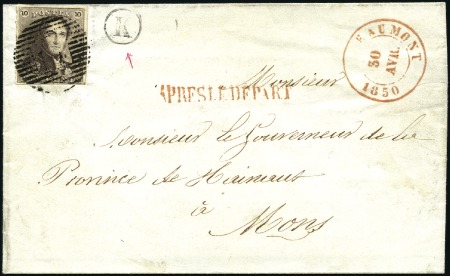 10 10
K
BEAUMONT
30
AVR.
1850
APRES LE DEPART
Monsieur
Monsieur le Gouverneur de la
Province de Hainaut
à
Mons